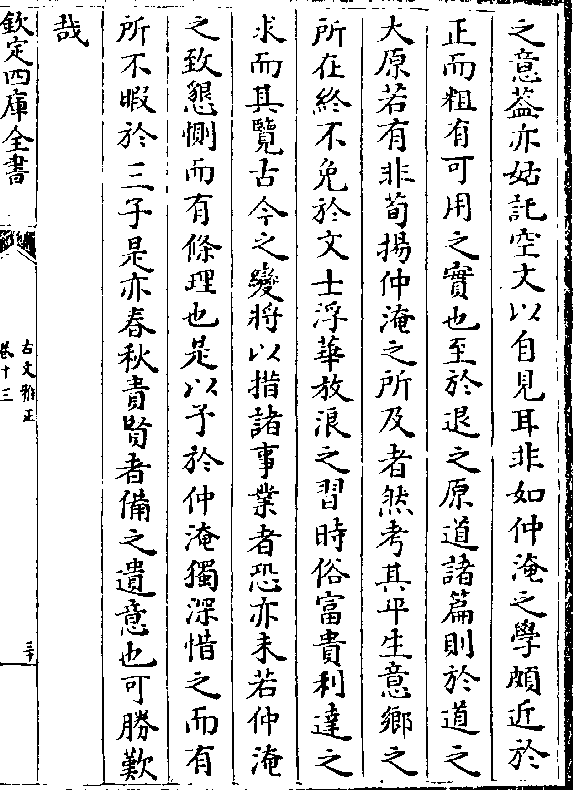 之意葢亦姑託空文以自見耳非如仲淹之學頗近於
正而粗有可用之實也至於退之原道諸篇則於道之
大原若有非荀揚仲淹之所及者然考其平生意鄉之
所在終不免於文士浮華放浪之習時俗富貴利達之
求而其覽古今之變將以措諸事業者恐亦未若仲淹
之致懇惻而有條理也是以予於仲淹獨深惜之而有
所不暇於三子是亦春秋責賢者備之遺意也可勝歎
哉
欽定四庫全書
古文雅正
卷十三